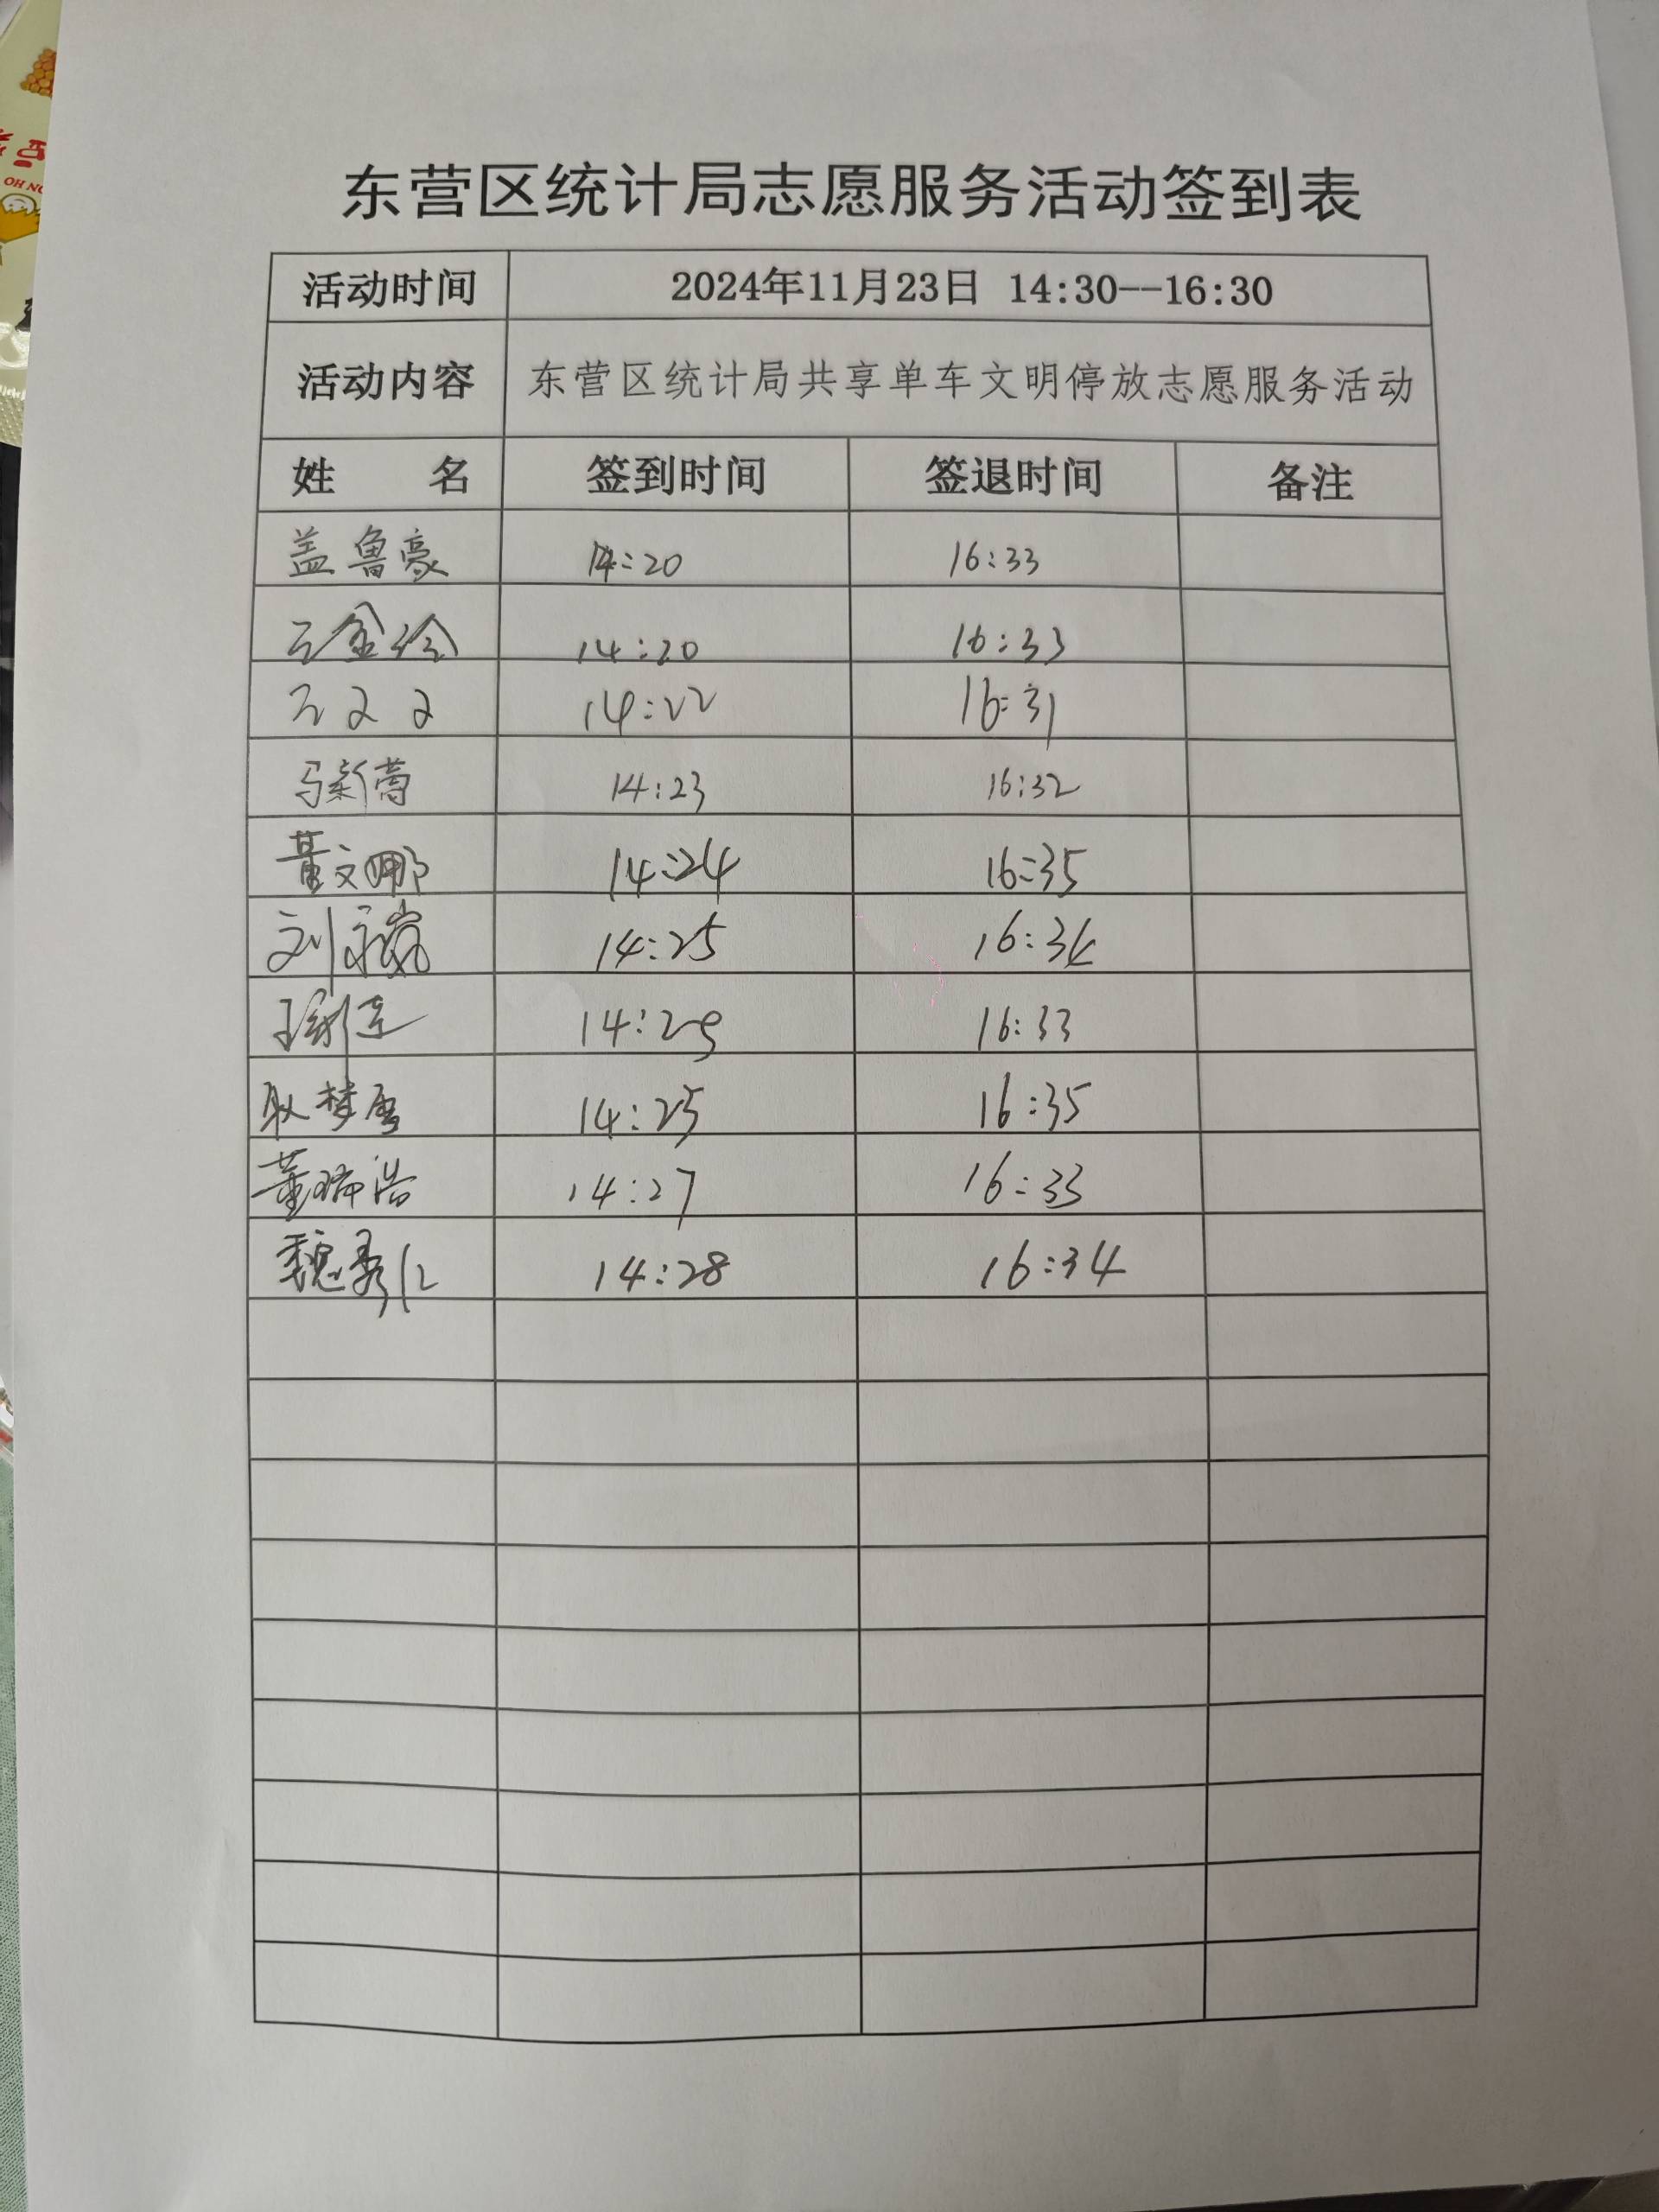 东营区统计局志愿服务活动签到表
活动时间 2024年11月23日 14:30--16:30
活动内容 东营区统计局共享单车文明停放志愿服务活动
姓 名 签到时间 签退时间 备注
盖鲁豪 14:20 16:33
14:20 16:33
14:22 16:31
马新蕾 14:23 16:32
董文娜 14:24 16:35
刘 14:25 16:34
王 14:25 16:33
耿梦 14:25 16:35
董瑞浩 14:27 16:33
魏秀仁 14:28 16:34
OH NO